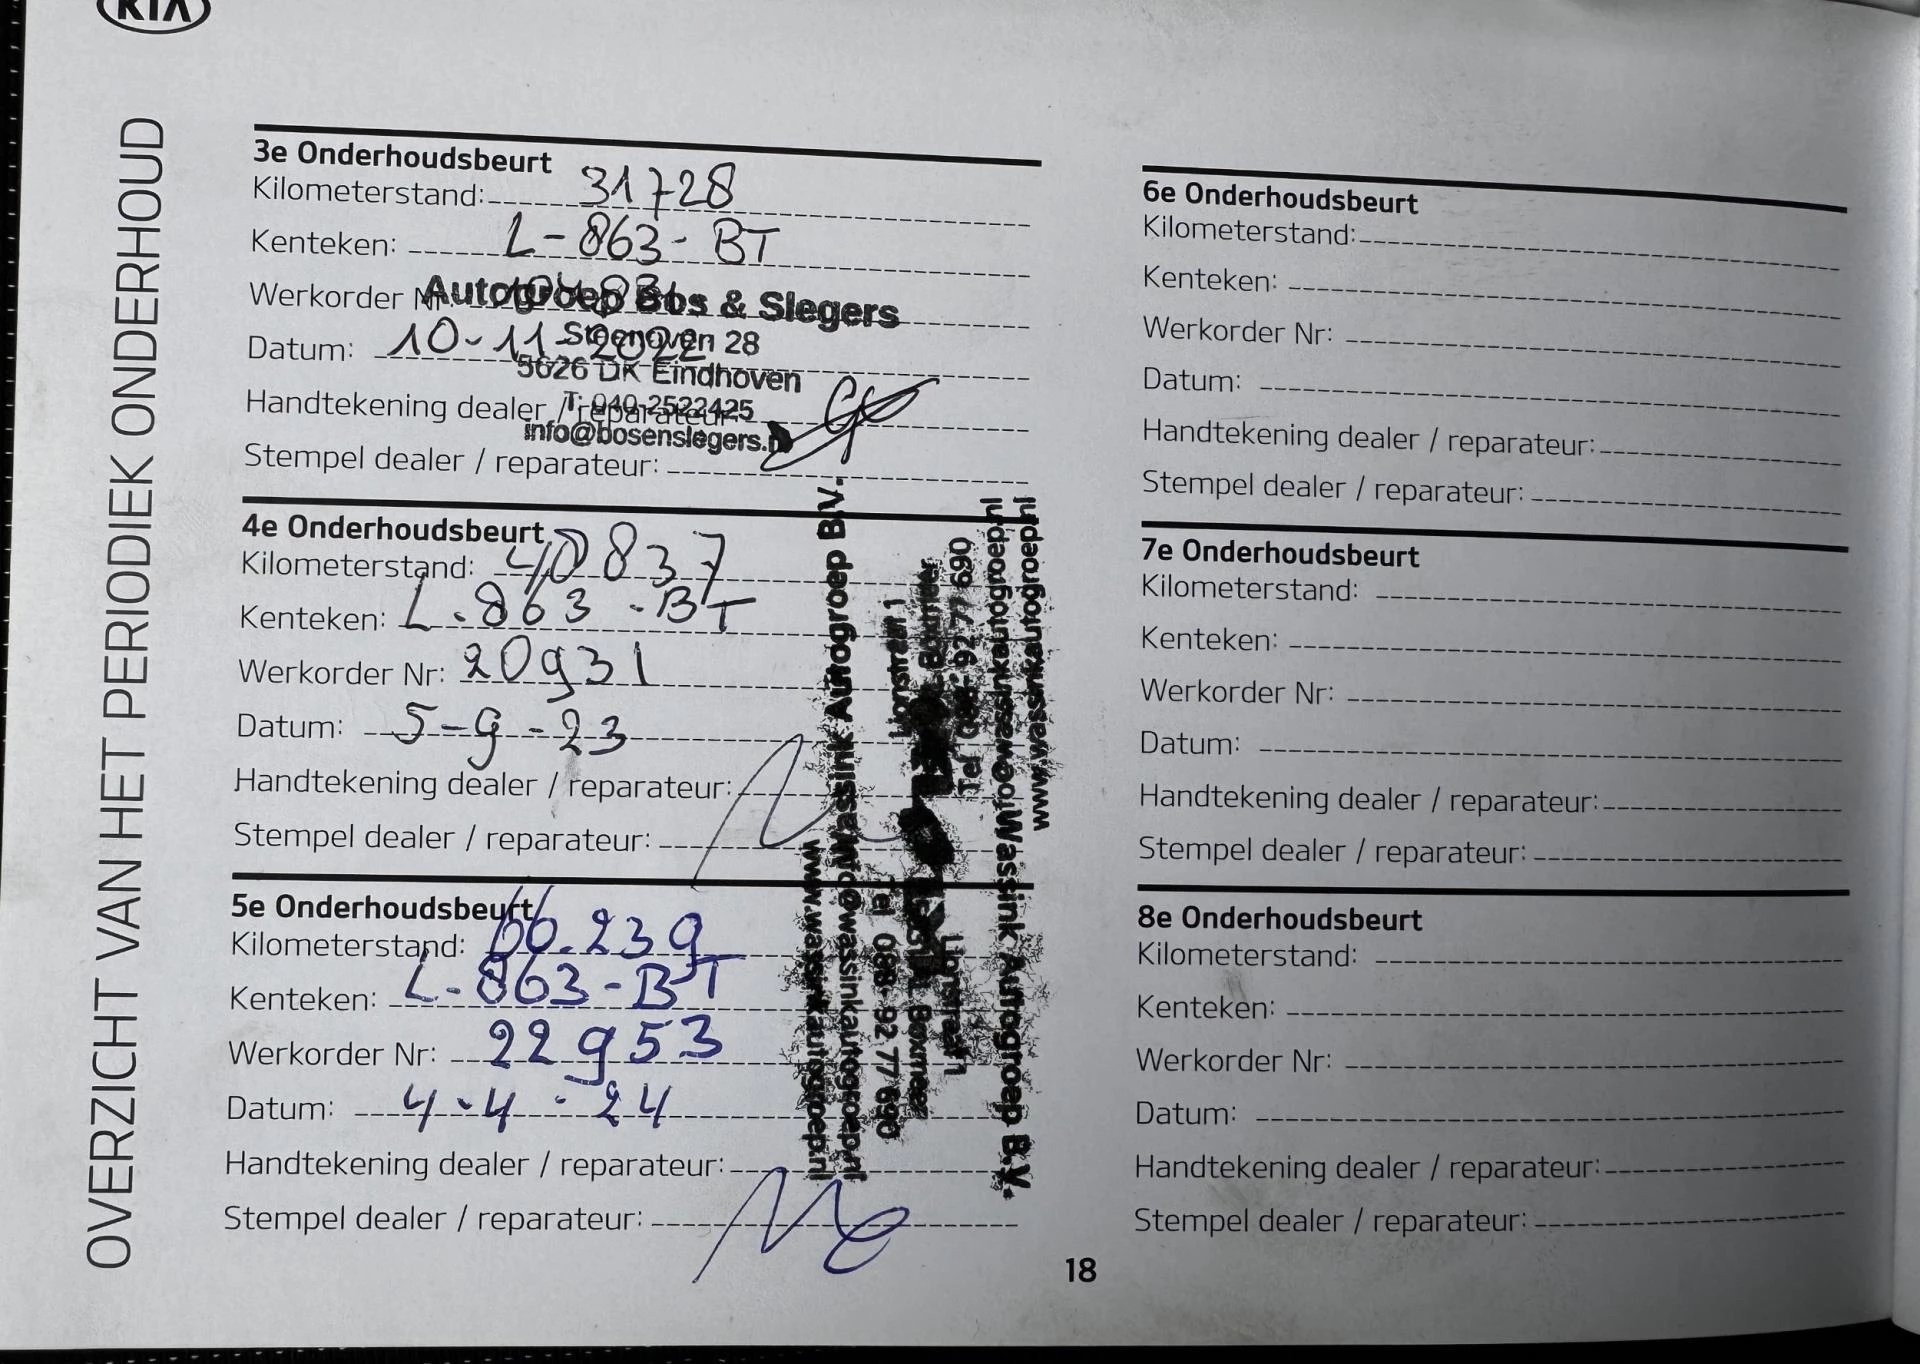 KIA
OVERZICHT VAN HET PERIODIEK ONDERHOUD
3e Onderhoudsbeurt
Kilometerstand: 31728
Kenteken: L-863-BT
Werkorder Nr:
Datum: 10-11-2022
Handtekening dealer / reparateur:
Stempel dealer / reparateur:
Autogroep Bos & Slegers
Steenoven 28
5626 DK Eindhoven
T: 040-2522425
info@bosenslegers.nl
4e Onderhoudsbeurt
Kilometerstand: 40837
Kenteken: L-863-BT
Werkorder Nr: 20931
Datum: 5-9-23
Handtekening dealer / reparateur:
Stempel dealer / reparateur:
Wassink Autogroep B.V.
Tel 088-92 77 690
info@wassinkautogroep.nl
www.wassinkautogroep.nl
5e Onderhoudsbeurt
Kilometerstand: 66.239
Kenteken: L-863-BT
Werkorder Nr: 22953
Datum: 4-4-24
Handtekening dealer / reparateur:
Stempel dealer / reparateur:
Wassink Autogroep B.V.
Boxmeer
Tel 088-92 77 690
info@wassinkautogroep.nl
www.wassinkautogroep.nl
6e Onderhoudsbeurt
Kilometerstand:
Kenteken:
Werkorder Nr:
Datum:
Handtekening dealer / reparateur:
Stempel dealer / reparateur:
7e Onderhoudsbeurt
Kilometerstand:
Kenteken:
Werkorder Nr:
Datum:
Handtekening dealer / reparateur:
Stempel dealer / reparateur:
8e Onderhoudsbeurt
Kilometerstand:
Kenteken:
Werkorder Nr:
Datum:
Handtekening dealer / reparateur:
Stempel dealer / reparateur:
18